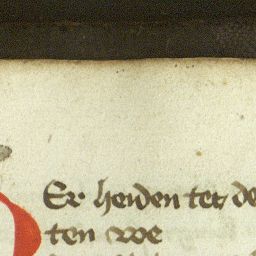 Er heiden tet de
ten we